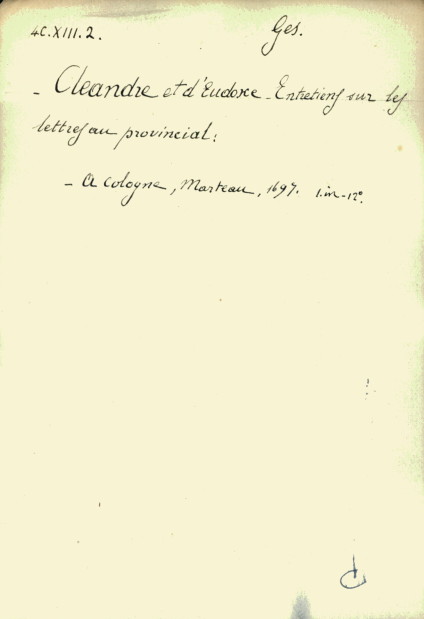 4C.XIII.2. Ges.
- Cleandre et d'Eudoxe - Entretiens sur les
lettres au provincial:
- A cologne, Marteau, 1697. 1.in-12°.